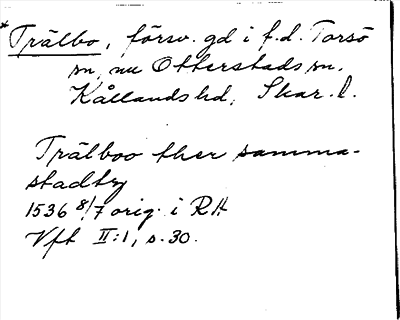 *Trälbo, försv. gd i f.d. Torsö
sn, nu Otterstads sn.
Kållands hd, Skar. l.
Trälboo ther samma-
stadby
1536 8/7 orig. i RH
Vft II:1, s. 30.